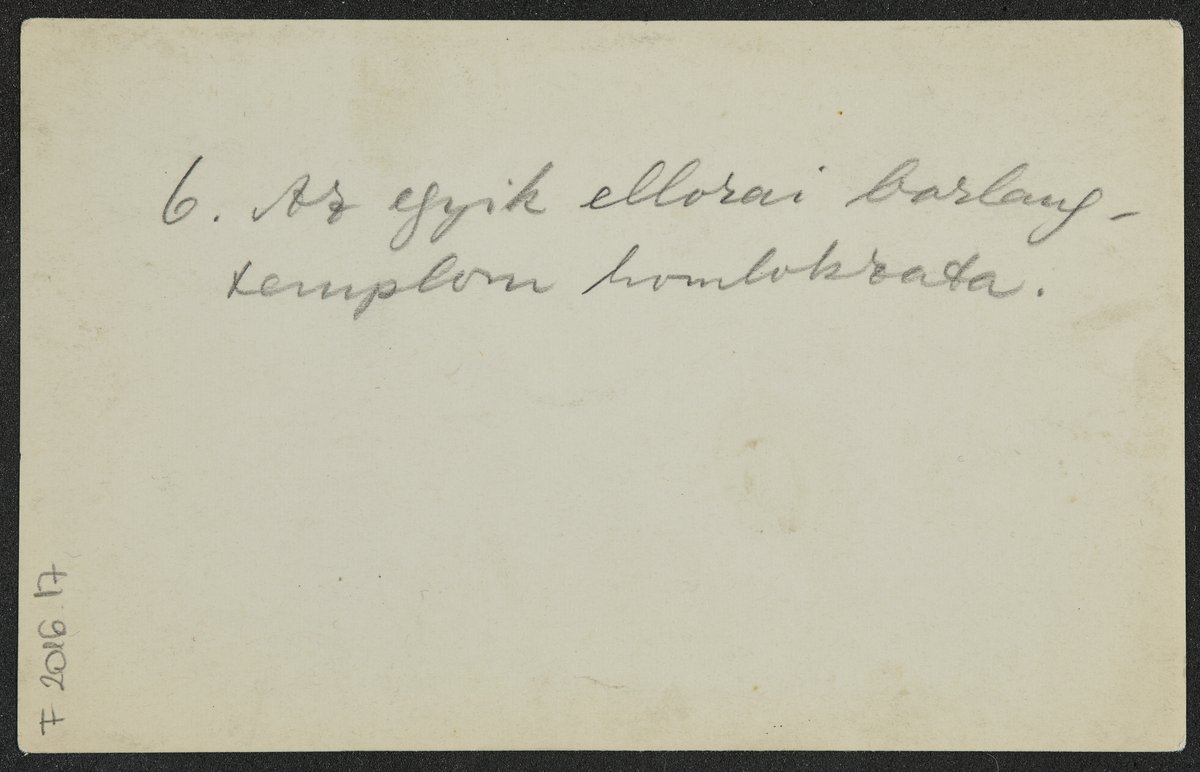 6. Az egyik ellorai barlang-
templom homlokzata.
F 2016.17